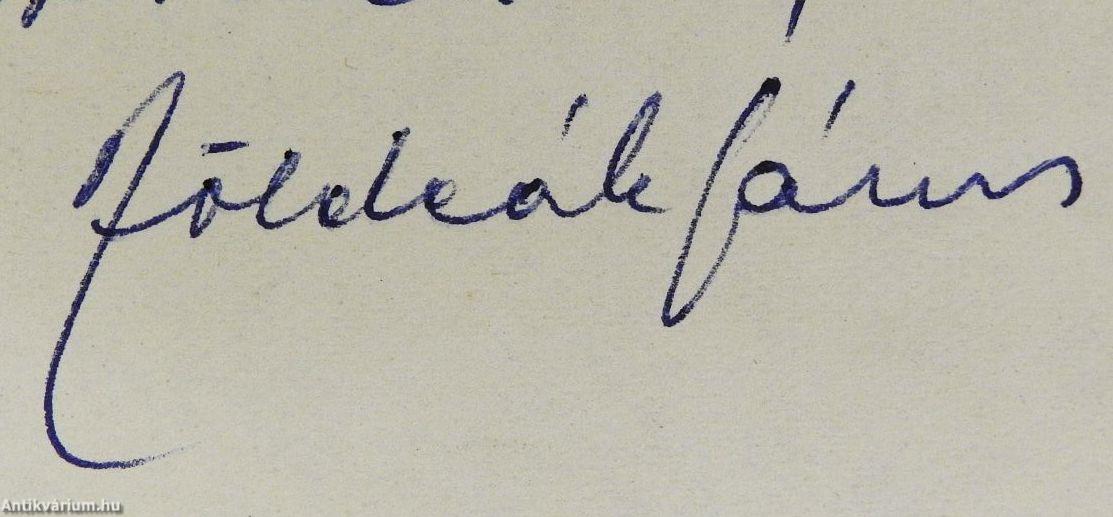 Földeák János
Antikvárium.hu